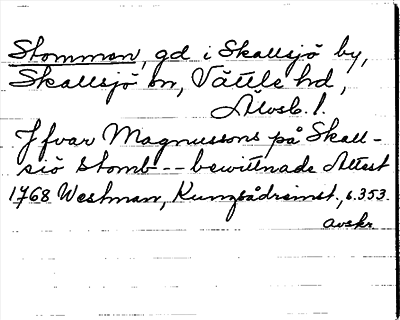 Stommen, gd i Skallsjö by,
Skallsjö sn, Vättle hd,
Älvsb. l.
Ifvar Magnussons på Skall-
siö Stomb -- bewittnade Attest
1768 Westman, Kungsådreinst., s. 353.
avskr.